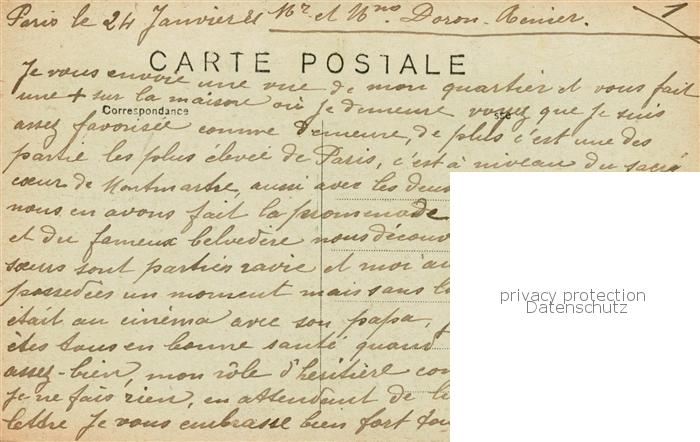 Paris le 24 Janvier Mr et Mme Doron-Renier. 1
CARTE POSTALE
Je vous envoie une vue de mon quartier et vous fait
une + sur la maison où je demeure voyez que je suis
Correspondance
assez favorisée comme demeure, de plus c'est une des
partie les plus élevée de Paris, c'est à niveau du sacré
cœur de Montmartre, aussi avec les deux
nous en avons fait la promenade
et du fameux belvédère nous découv
sœurs sont parties ravie et moi
possedées un moment mais sans
était au cinéma avec son papa,
êtes tous en bonne santé quand
assez-bien, mon rôle d'héritière
Je ne fais rien, en attendant de
lettre Je vous embrasse bien fort
privacy protection
Datenschutz